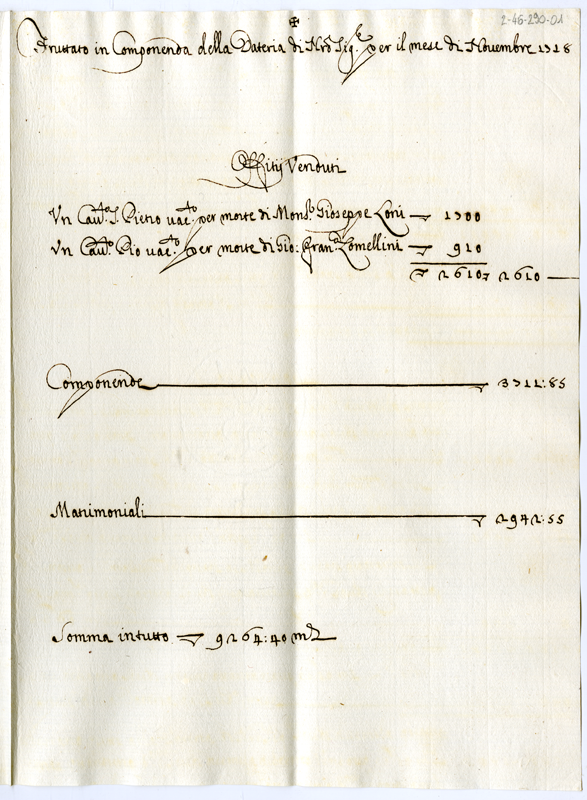 2-46-290-01
✠
Fruttato in Componenda della Dateria di Nrõ Sigre per il mese di Nouembre 1718
Offitij Venduti
Vn Cauto S. Pietro uacto per morte di Monsr Gioseppe Loni — ▽ 1700
Vn Cauto Pio uacto per morte di Gio: Franco Lomellini — ▽ 910
▽ 2610 ▽ 2610 —
Componende — ▽ 3711:85
Matrimoniali — ▽ 2942:55
Somma in tutto — ▽ 9264:40 mta